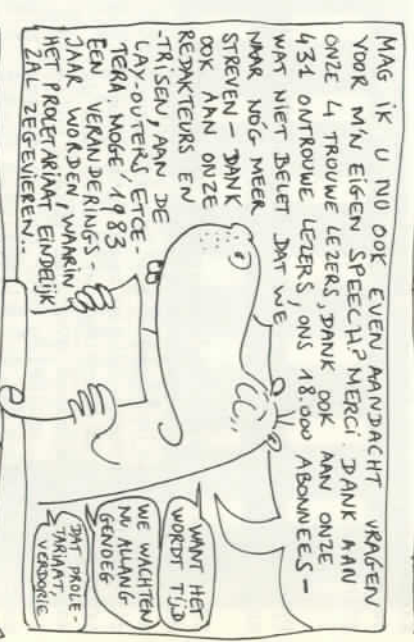 MAG IK U NU OOK EVEN AANDACHT VRAGEN
VOOR M'N EIGEN SPEECH? MERCI. DANK AAN
ONZE 4 TROUWE LEZERS, DANK OOK AAN ONZE
431 ONTROUWE LEZERS, ONS 18.000 ABONNEES -
WAT NIET BELET DAT WE
NAAR NÓG MEER
STREVEN - DANK
OOK AAN ONZE
REDAKTEURS EN
-TRISEN, AAN DE
LAY-OUTERS, ETCE-
TERA. MOGE 1983
EEN VERANDERINGS-
JAAR WORDEN, WAARIN
HET PROLETARIAAT EINDELIJK
ZAL ZEGEVIEREN...
WANT HET
WORDT TIJD
WE WACHTEN
NU ALLANG
GENOEG
DAT PROLE-
TARIAAT,
VERDORIE